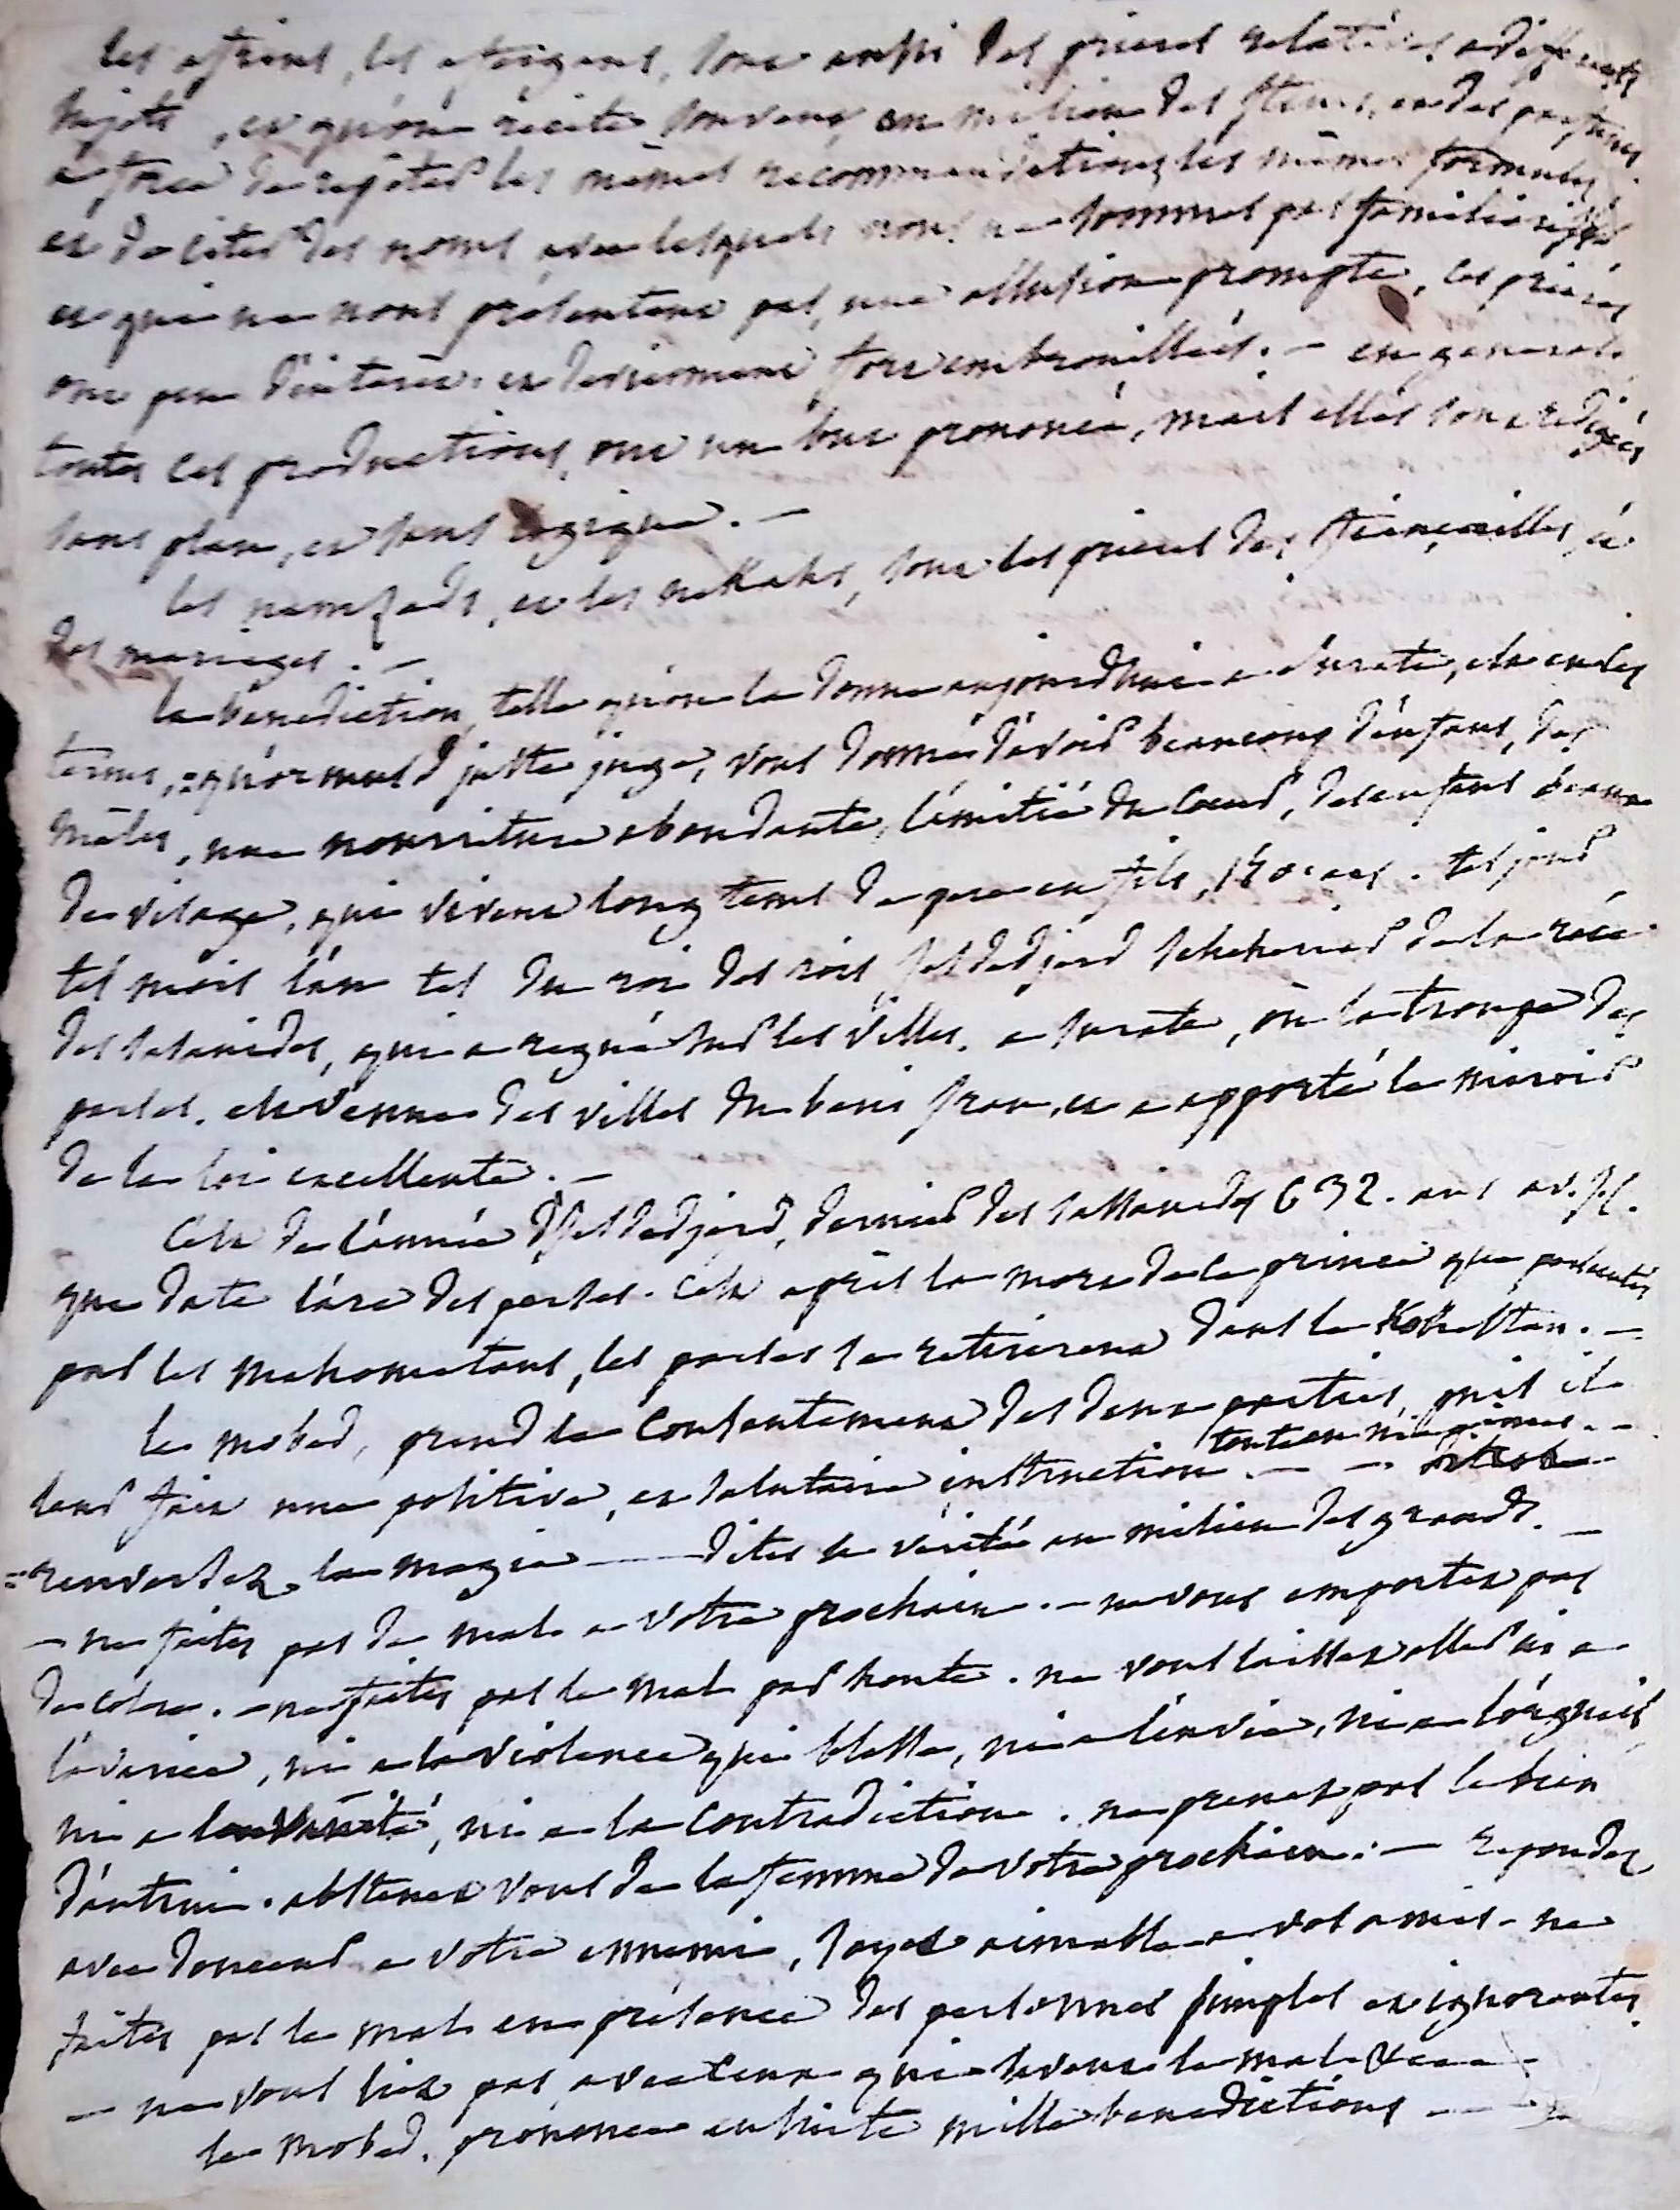 les afrins, les afergans, sont aussi des prieres relatives a differents
sujets, et qu'on recite souvent au milieu des fleurs, et des parfums.
a force de repeter les mêmes recommendations, les mêmes formules,
et de citer des noms avec lesquels nous ne sommes pas familiarisés
et qui ne nous presentent pas, une allusion prompte, ces prieres
ont peu d'interêt. et deviennent fort embrouillées. — en general.
toutes ces productions, ont un but prononcé, mais elles sont redigées
sans plan, et sans logique. —
les namzads, et les nekahs, sont les prieres des fiançailles, et
des mariages. —
la benediction, telle qu'on la donne aujourdhui a surate, est en ces
termes, = qu'ormusd juste juge, vous donne d'avoir beaucoup d'enfans, des
mâles, une nourriture abondante, l'amitié du coeur, des enfans beaux
de visage, qui vivent long tems de pere en fils, 150 ans. tel jour
tel mois l'an tel du roi des rois Jesdedjerd scheheriar de la race
des sasanides, qui a regné sur les villes. a surate, où la troupe des
perses. est venue des villes du beni iran, et a apporté le miroir
de la loi excellente. —
C'est de l'année d'Jesdedjerd, dernier des sassanides 632. ans av. J.C.
que date l'ere des perses. C'est après la mort de ce prince que persecutés
par les mahometans, les perses se retirerent dans le Kohestan. —
le mobed, prend le consentement des deux parties, puis il
leur fait une positive, et salutaire instruction. — —
= renversez la magie — dites la vérité au milieu des grands. —
— ne faites pas de mal a votre prochain. — ne vous emportez pas
de colere. — ne faites pas le mal par honte. ne vous laissez aller ni a
l'avarice, ni a la violence qui blesse, ni a l'envie, ni a l'orgueil
ni a la vanité, ni a la contradiction. ne prenez pas le bien
d'autrui. abstenez vous de la femme de votre prochain. — repondez
avec douceur a votre ennemi, soyez aimable a vos amis - ne
faites pas le mal en présence des personnes simples et ignorantes.
— ne vous liez pas avec ceux qui suivent le mal
le mobed, prononce ensuite mille benedictions —